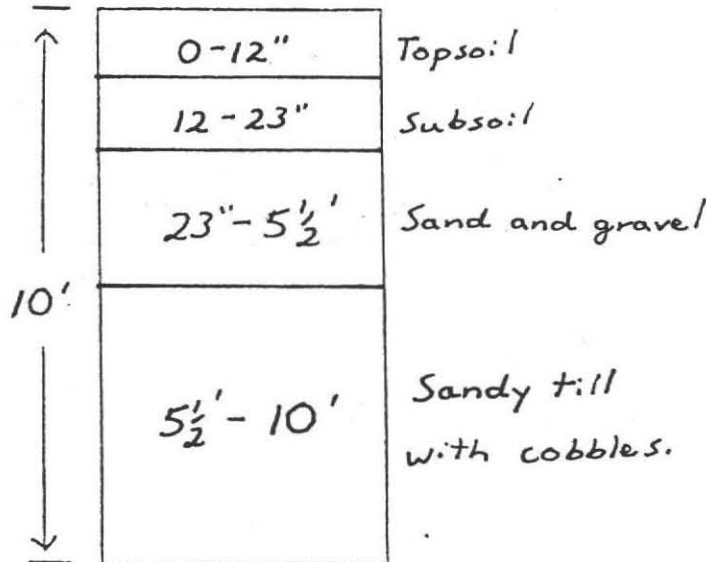 0-12" Topsoil
12-23" Subsoil
23"-5½' Sand and gravel
10'
5½'-10' Sandy till
with cobbles.